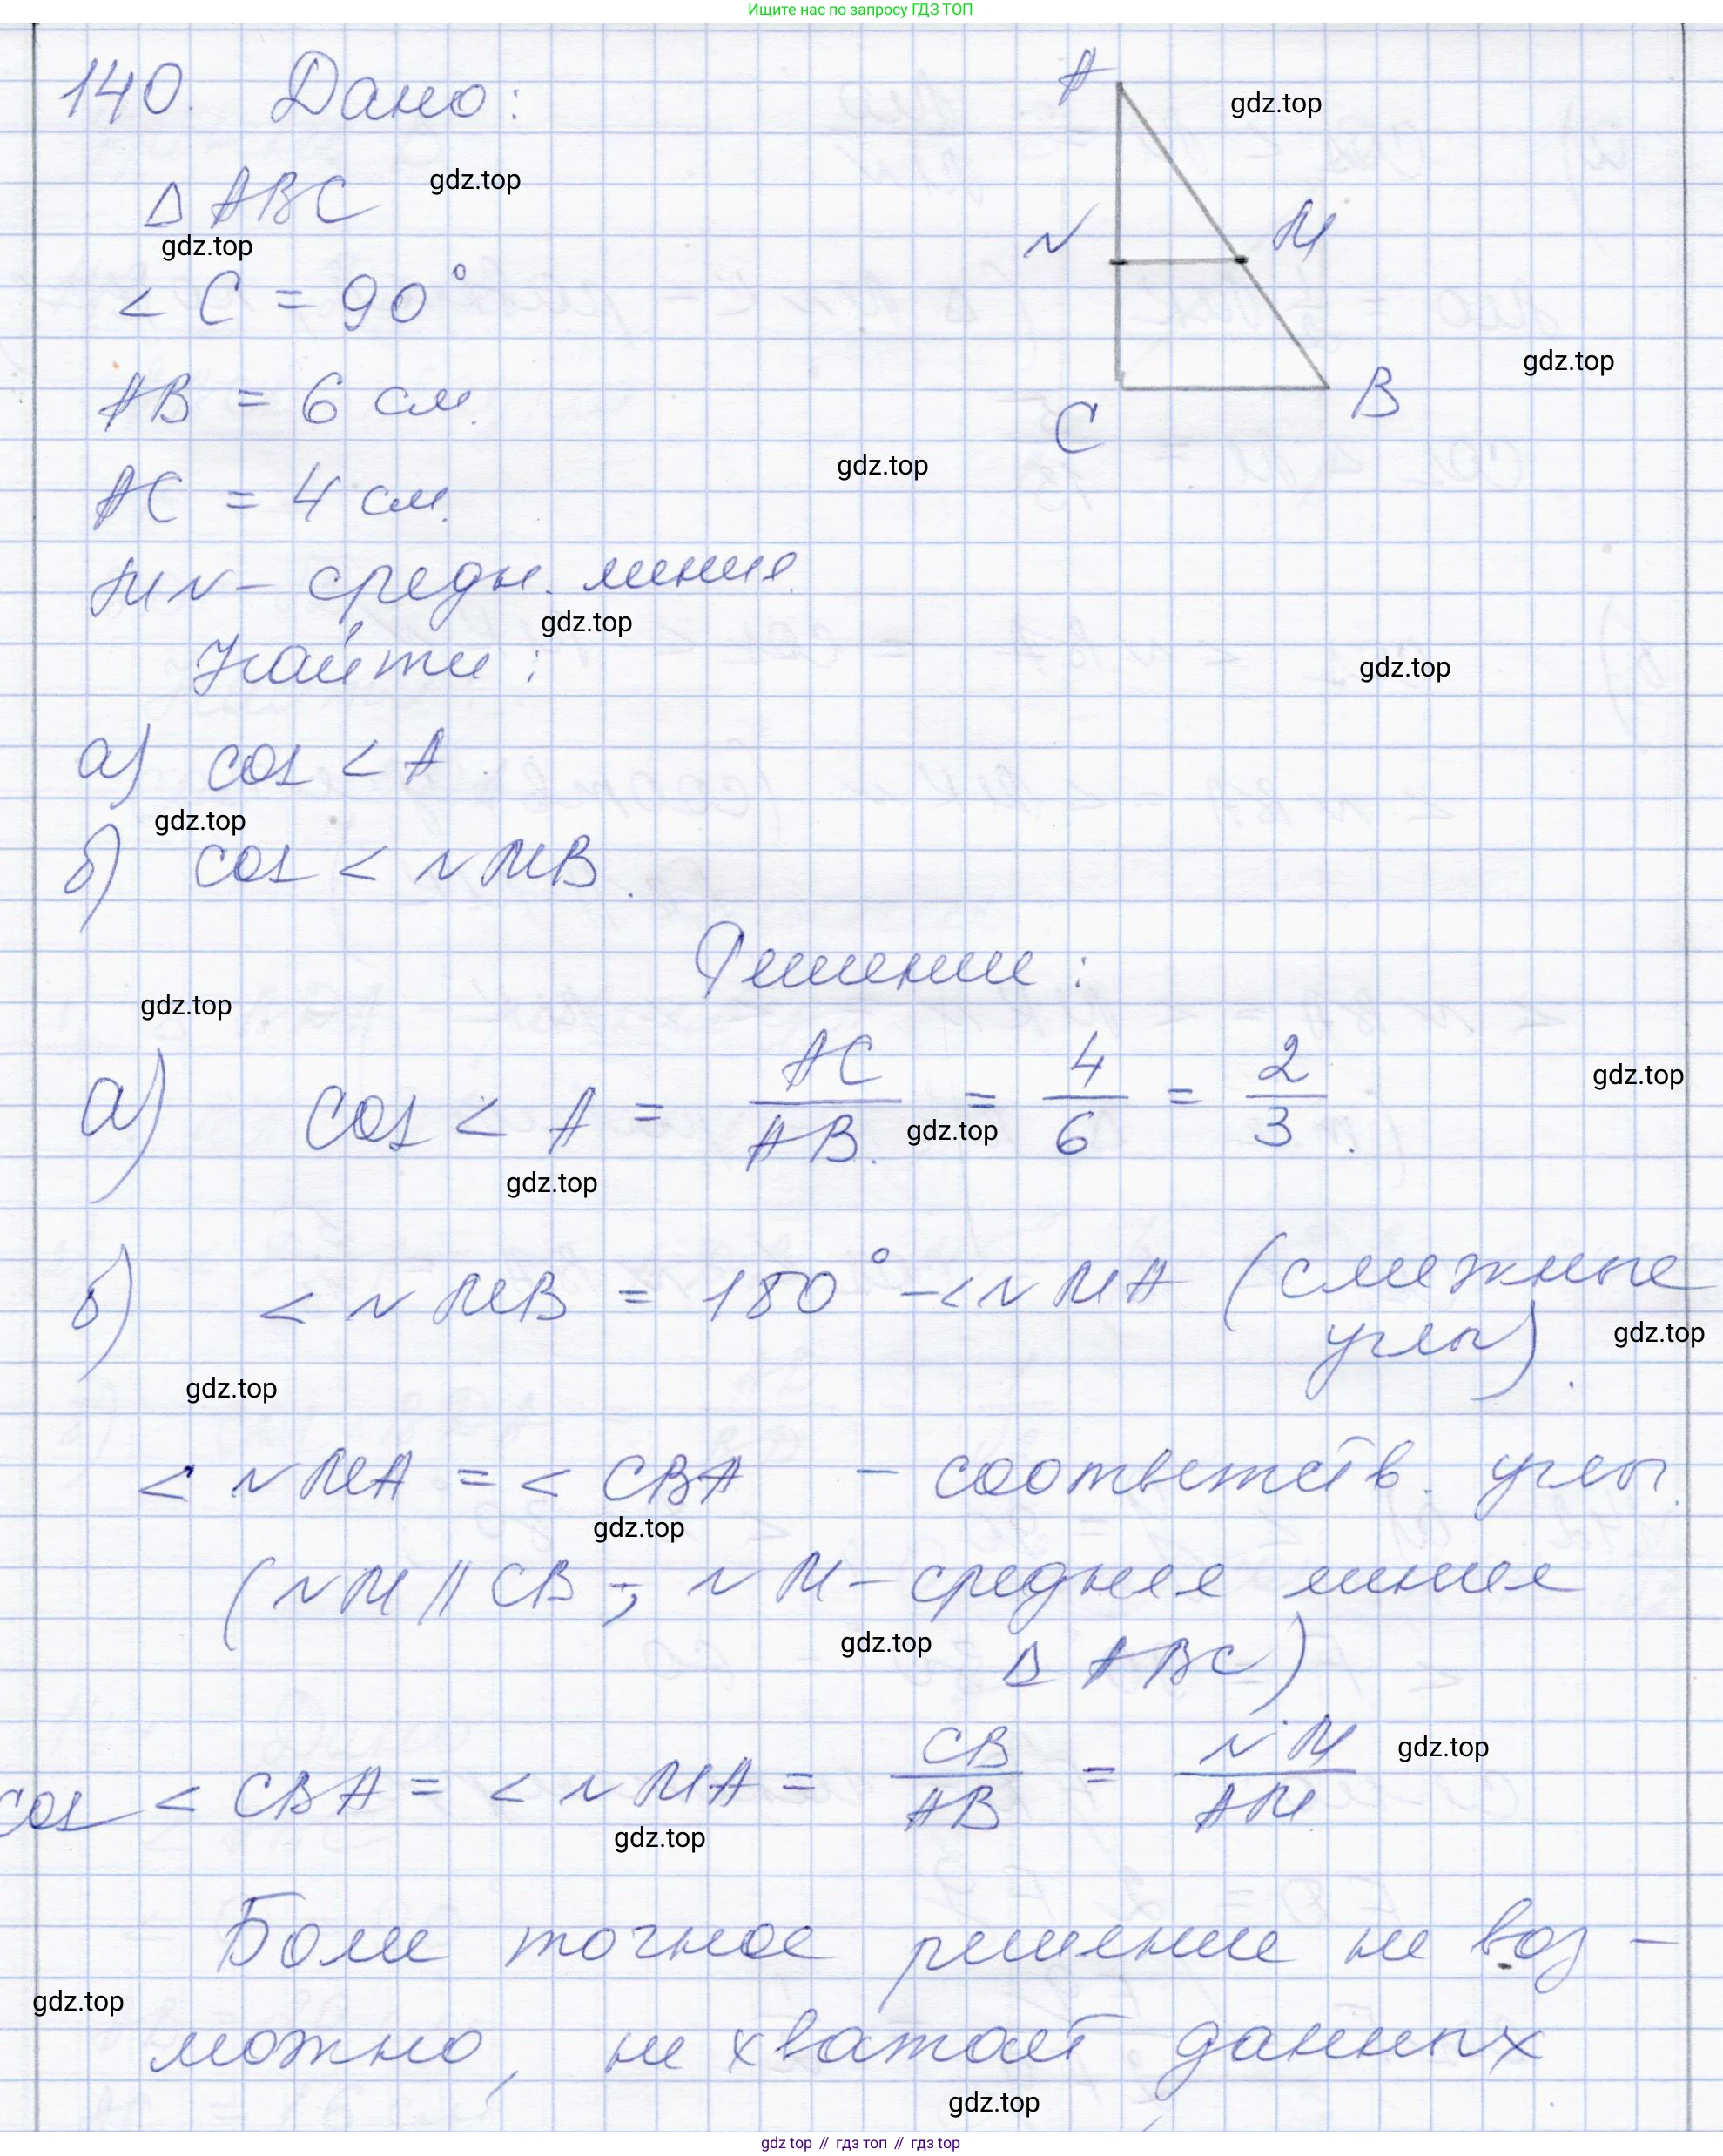 Ищите нас по запросу ГДЗ ТОП
140. Дано:
A
gdz.top
Δ ABC
gdz.top
gdz.top
N
M
< C = 90°
gdz.top
AB = 6 см.
C
B
gdz.top
AC = 4 см.
MN – средн. линия.
gdz.top
Найти:
gdz.top
а) cos < A.
gdz.top
б) cos < NMB.
Решение:
gdz.top
а) cos < A = AC/AB. = 4/6 = 2/3.
gdz.top
gdz.top
gdz.top
б) < NMB = 180° – < NMA (смежные
углы).
gdz.top
gdz.top
< NMA = < CBA – соответств. углы.
gdz.top
(NM || CB; NM – средняя линия
gdz.top
Δ ABC)
cos < CBA = < NMA = CB/AB = NM/AM
gdz.top
gdz.top
Боле точное решение не воз-
gdz.top
можно, не хватает данных
gdz.top
gdz top // гдз топ // гдз top